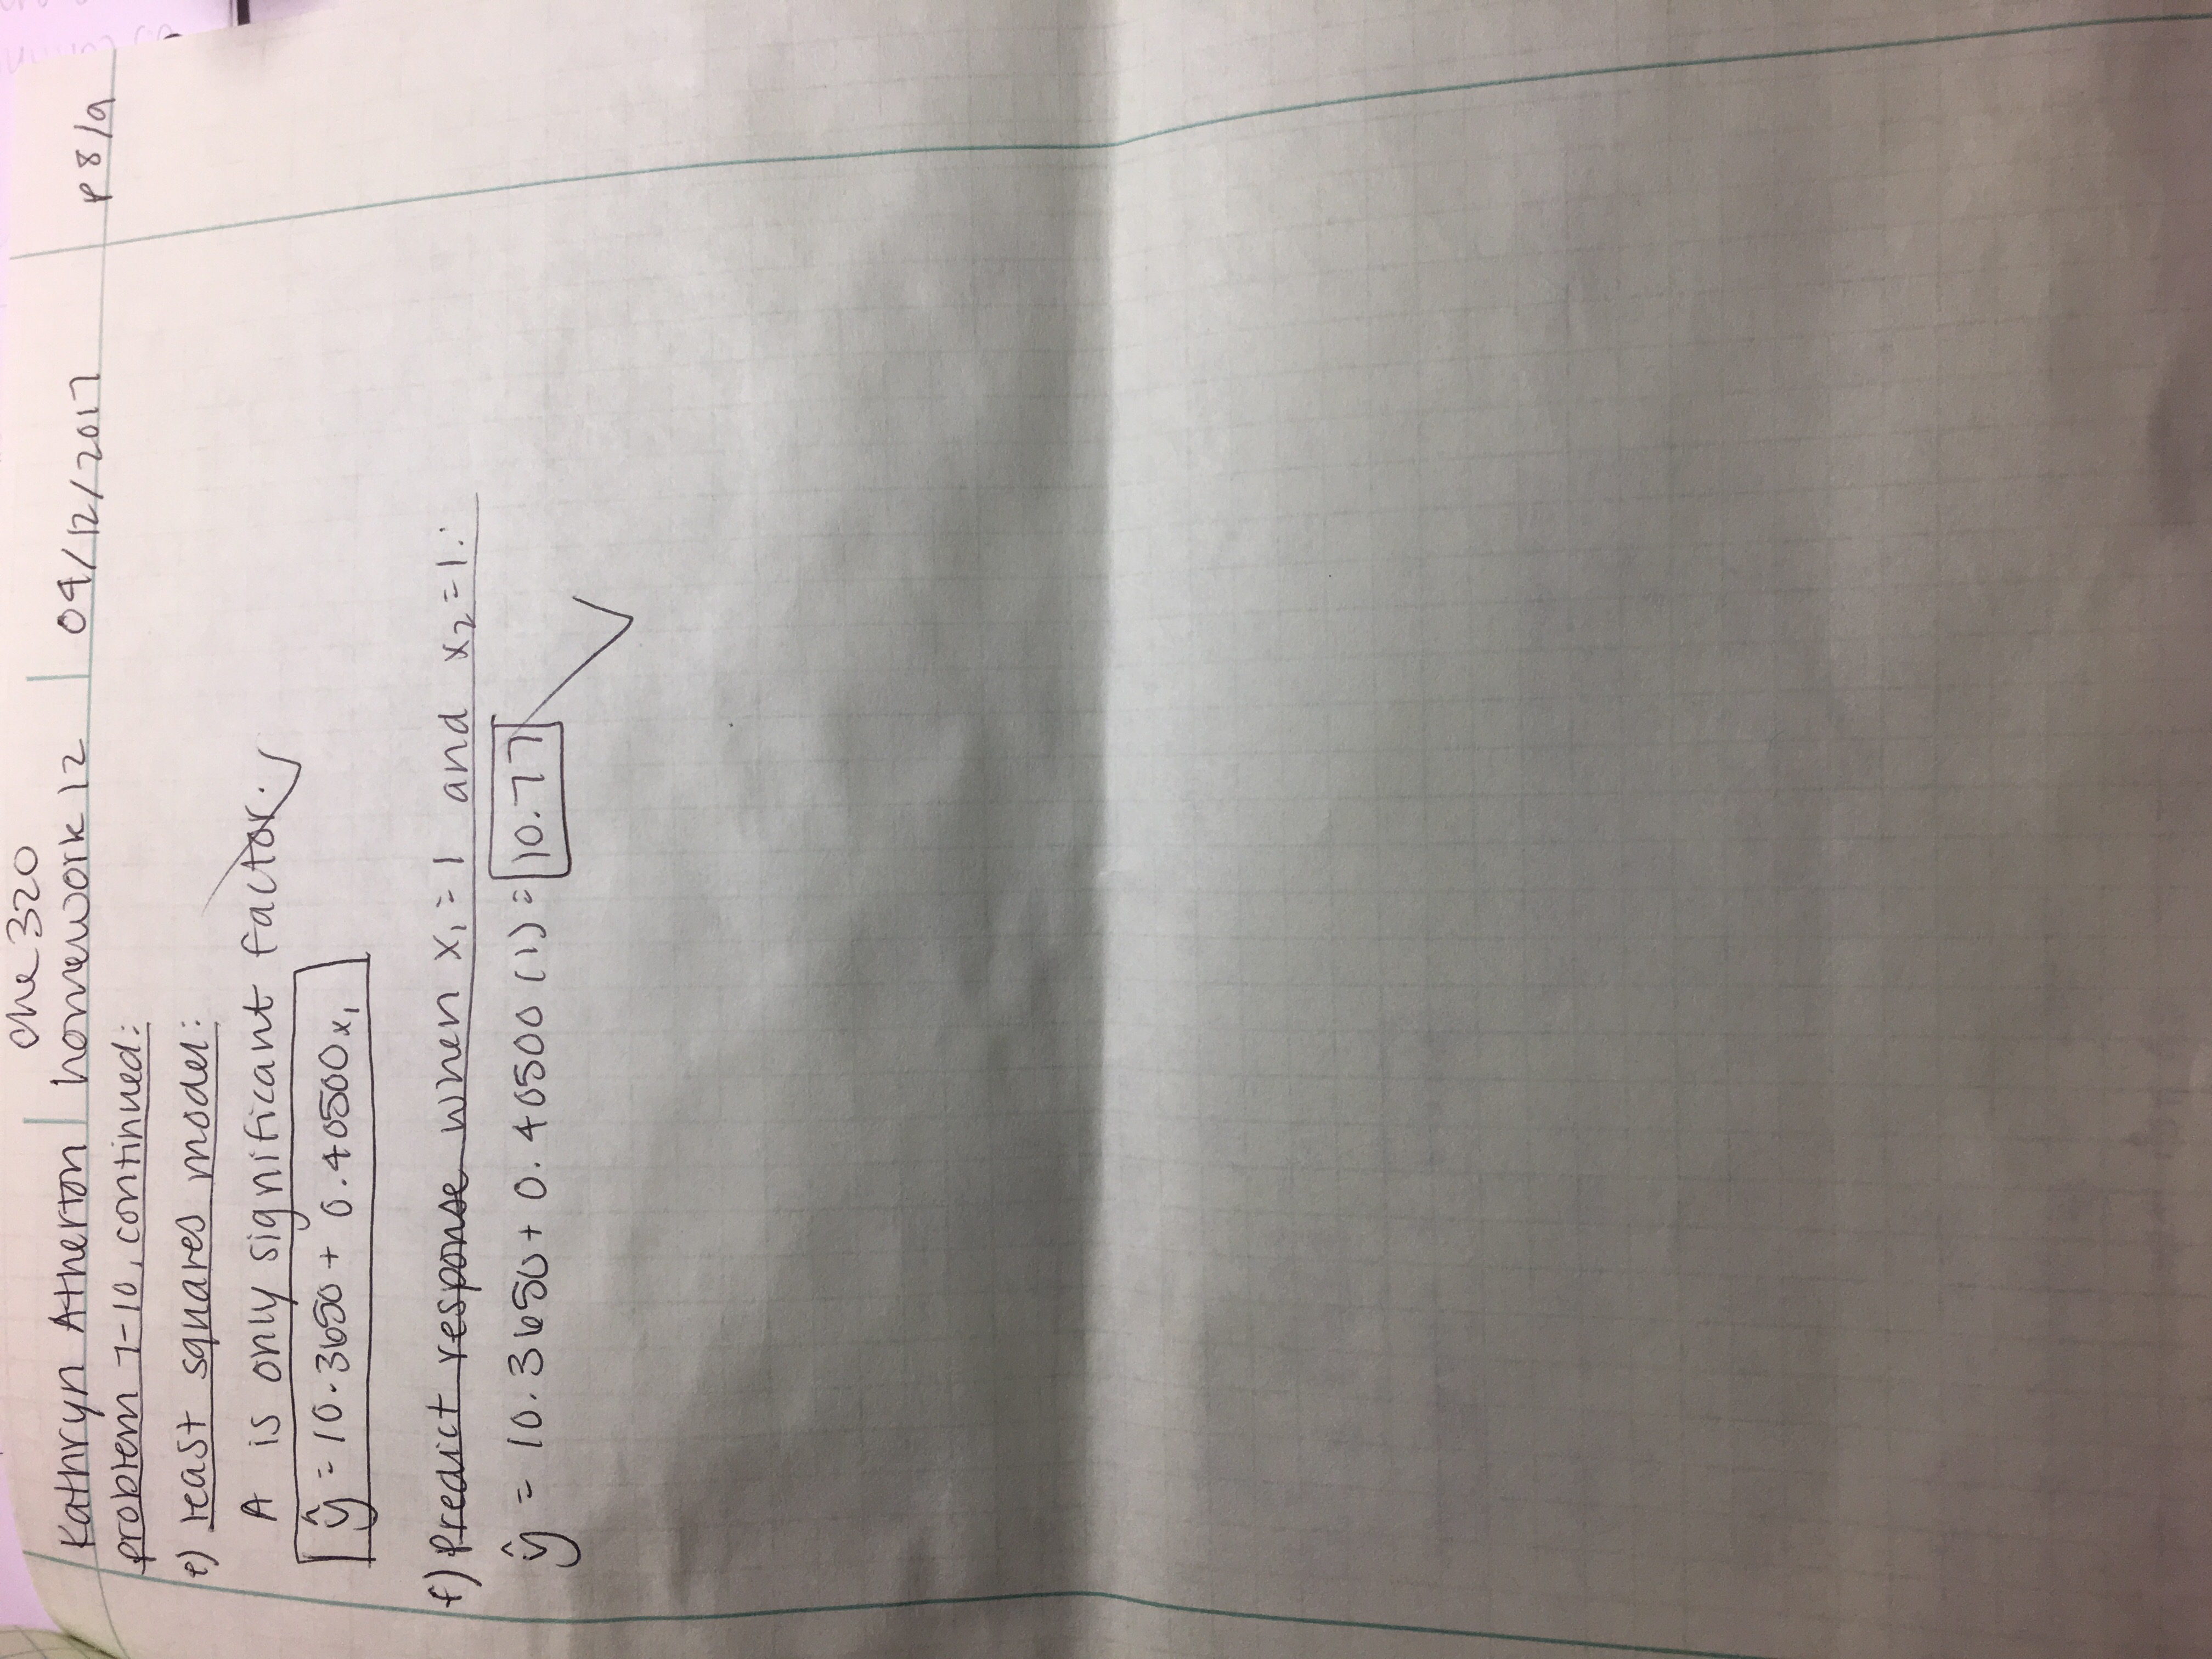 che 320
Kathryn Atherton homework 12 04/12/2017 p 8/9
problem 7-10, continued:
e) least squares model:
A is only significant factor.
ŷ = 10.3650 + 0.40500x₁
f) Predict response when x₁ = 1 and x₂ = 1:
ŷ = 10.3650 + 0.40500 (1) = 10.77